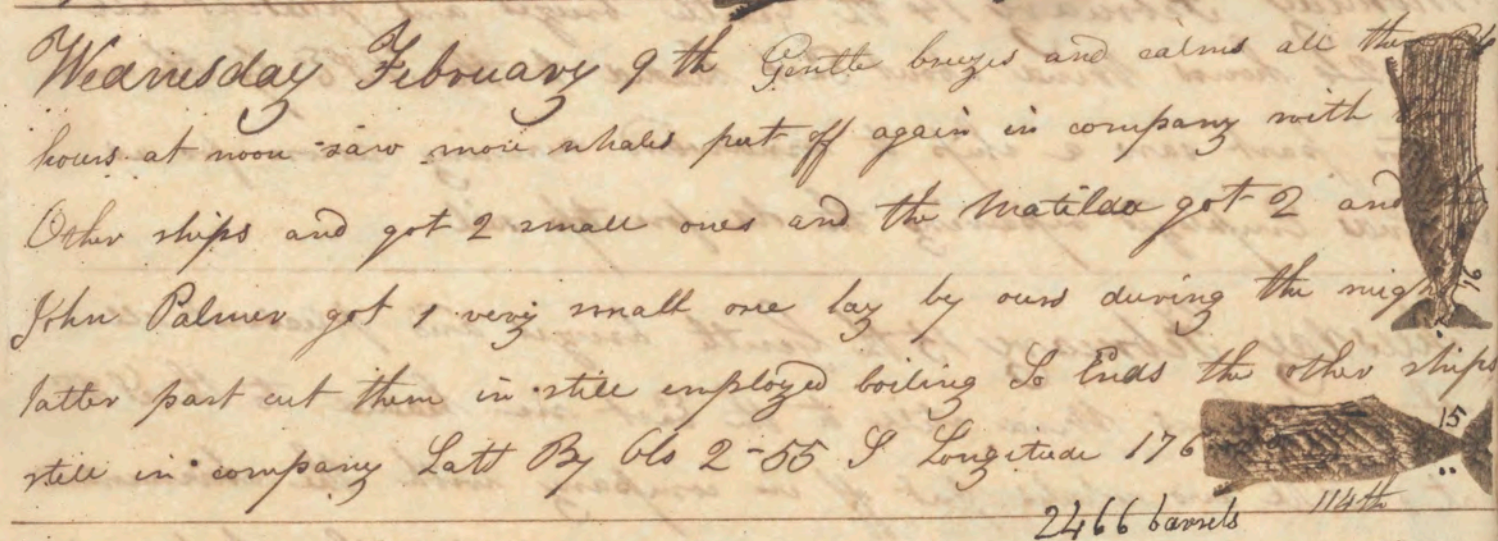 Wednesday February 9th Gentle breezes and calms all the
hours at noon saw more whales put off again in company with
Other ships and got 2 small ones and the Matilda got 2 and the
John Palmer got 1 very small one lay by ours during the nigh
latter part cut them in still employed boiling So Ends the other ships
still in company Latt By Obs 2-55 S Longitude 176
16
15
114th
2466 barrels